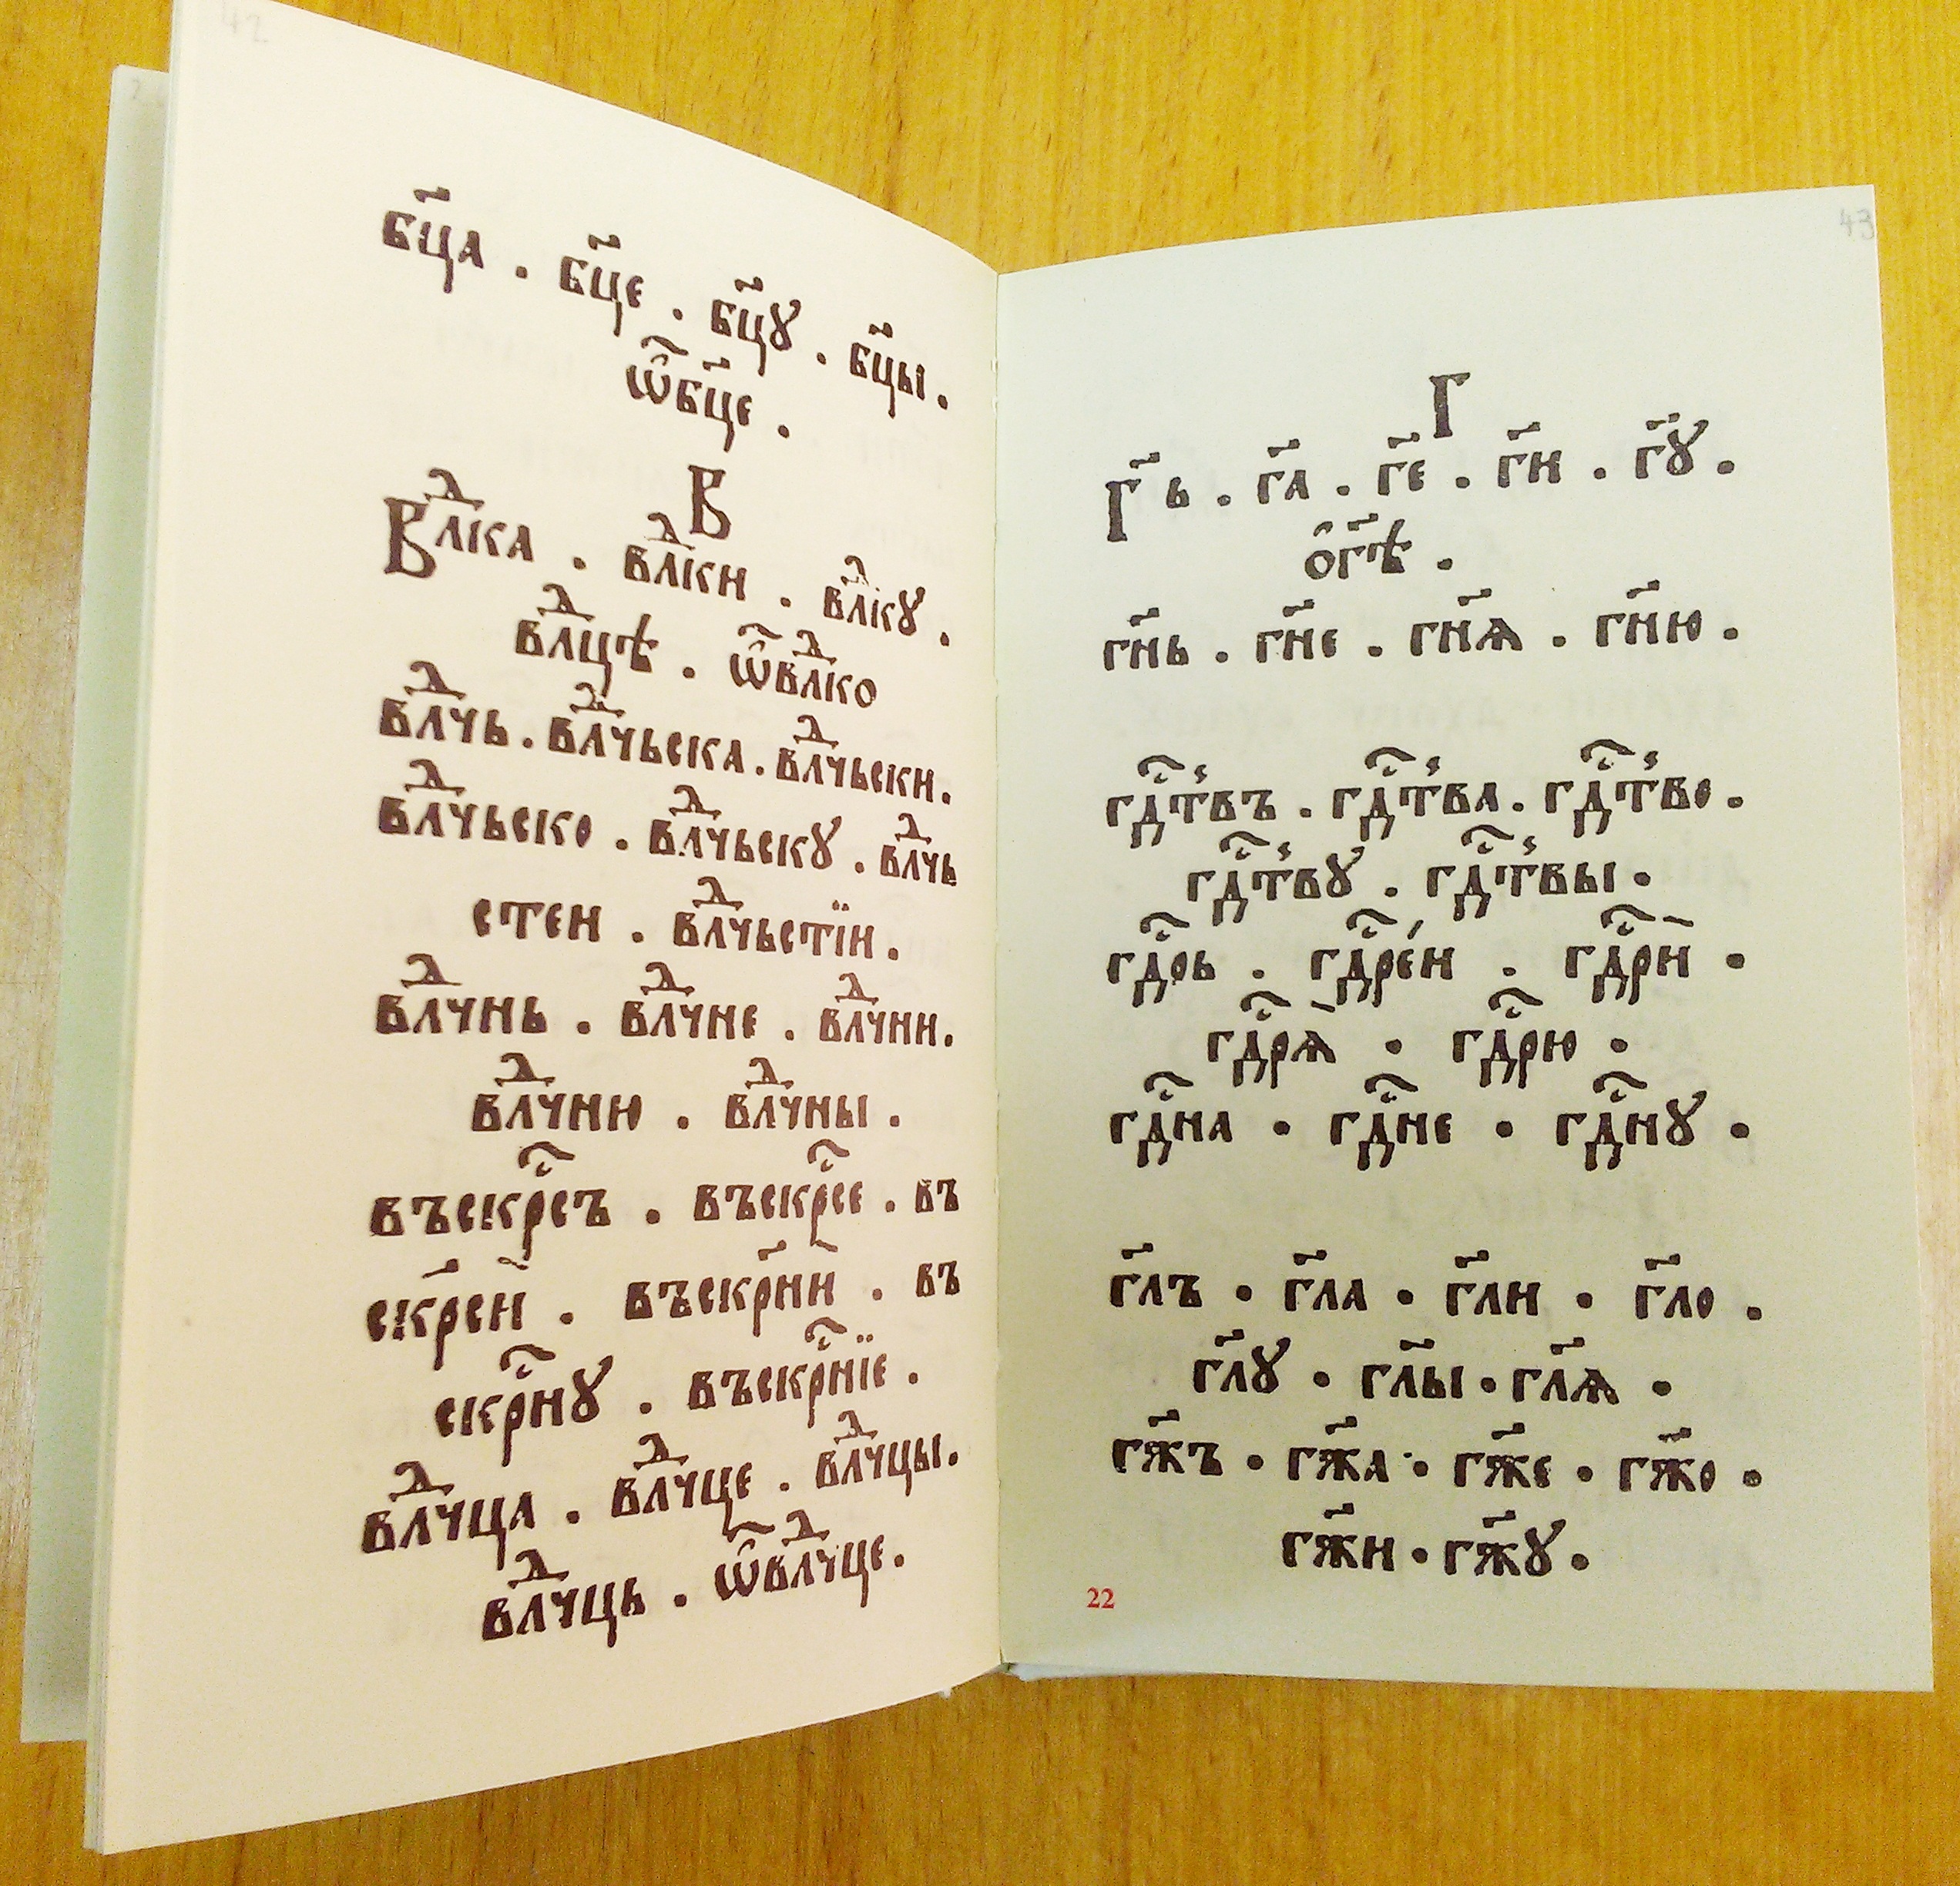 42
бц҃а . бц҃е . бц҃ꙋ . бц҃ы .
ѿбц҃е .
В
Влⷣка . влⷣки . влⷣкꙋ .
влⷣцѣ . ѿвлⷣко
влⷣчь . влⷣчьска . влⷣчьски .
влⷣчьско . влⷣчьскꙋ . влⷣчь
стеи . влⷣчьстїи .
влⷣчнь . влⷣчне . влⷣчни .
влⷣчню . влⷣчны .
въскрⷭсъ . въскрⷭсе . въ
скр҃сен̄ . въскр҃нн̄ . въ
скрⷭнꙋ . въскрⷭнїе .
влⷣчца . влⷣчце . влⷣчцы .
влⷣчць . ѿвлⷣчце .
43
Г
Г҃ь . г҃а . г҃е . г҃и . г҃ꙋ .
о̑г҃ѣ .
гн҃ь . гн҃е . гн҃ѧ . гн҃ю .
гдⷭ҇тⷭвъ . гдⷭ҇тⷭва . гдⷭ҇тⷭво .
гдⷭ҇тⷭвꙋ . гдⷭ҇тⷭвы .
гдⷭ҇рь . гдⷭ҇ре́и . гдⷭ҇рӣ .
гдⷭ҇рѧ̄ . гдⷭ҇рю .
гдⷭ҇на . гдⷭ҇не . гдⷭ҇нꙋ .
гл҃ъ . гл҃а . гл҃и . гл҃о .
гл҃ꙋ . гл҃ы . гл҃ѧ .
гж҃ъ . гж҃а . гж҃е . гж҃о .
гж҃и . гж҃ꙋ .
22